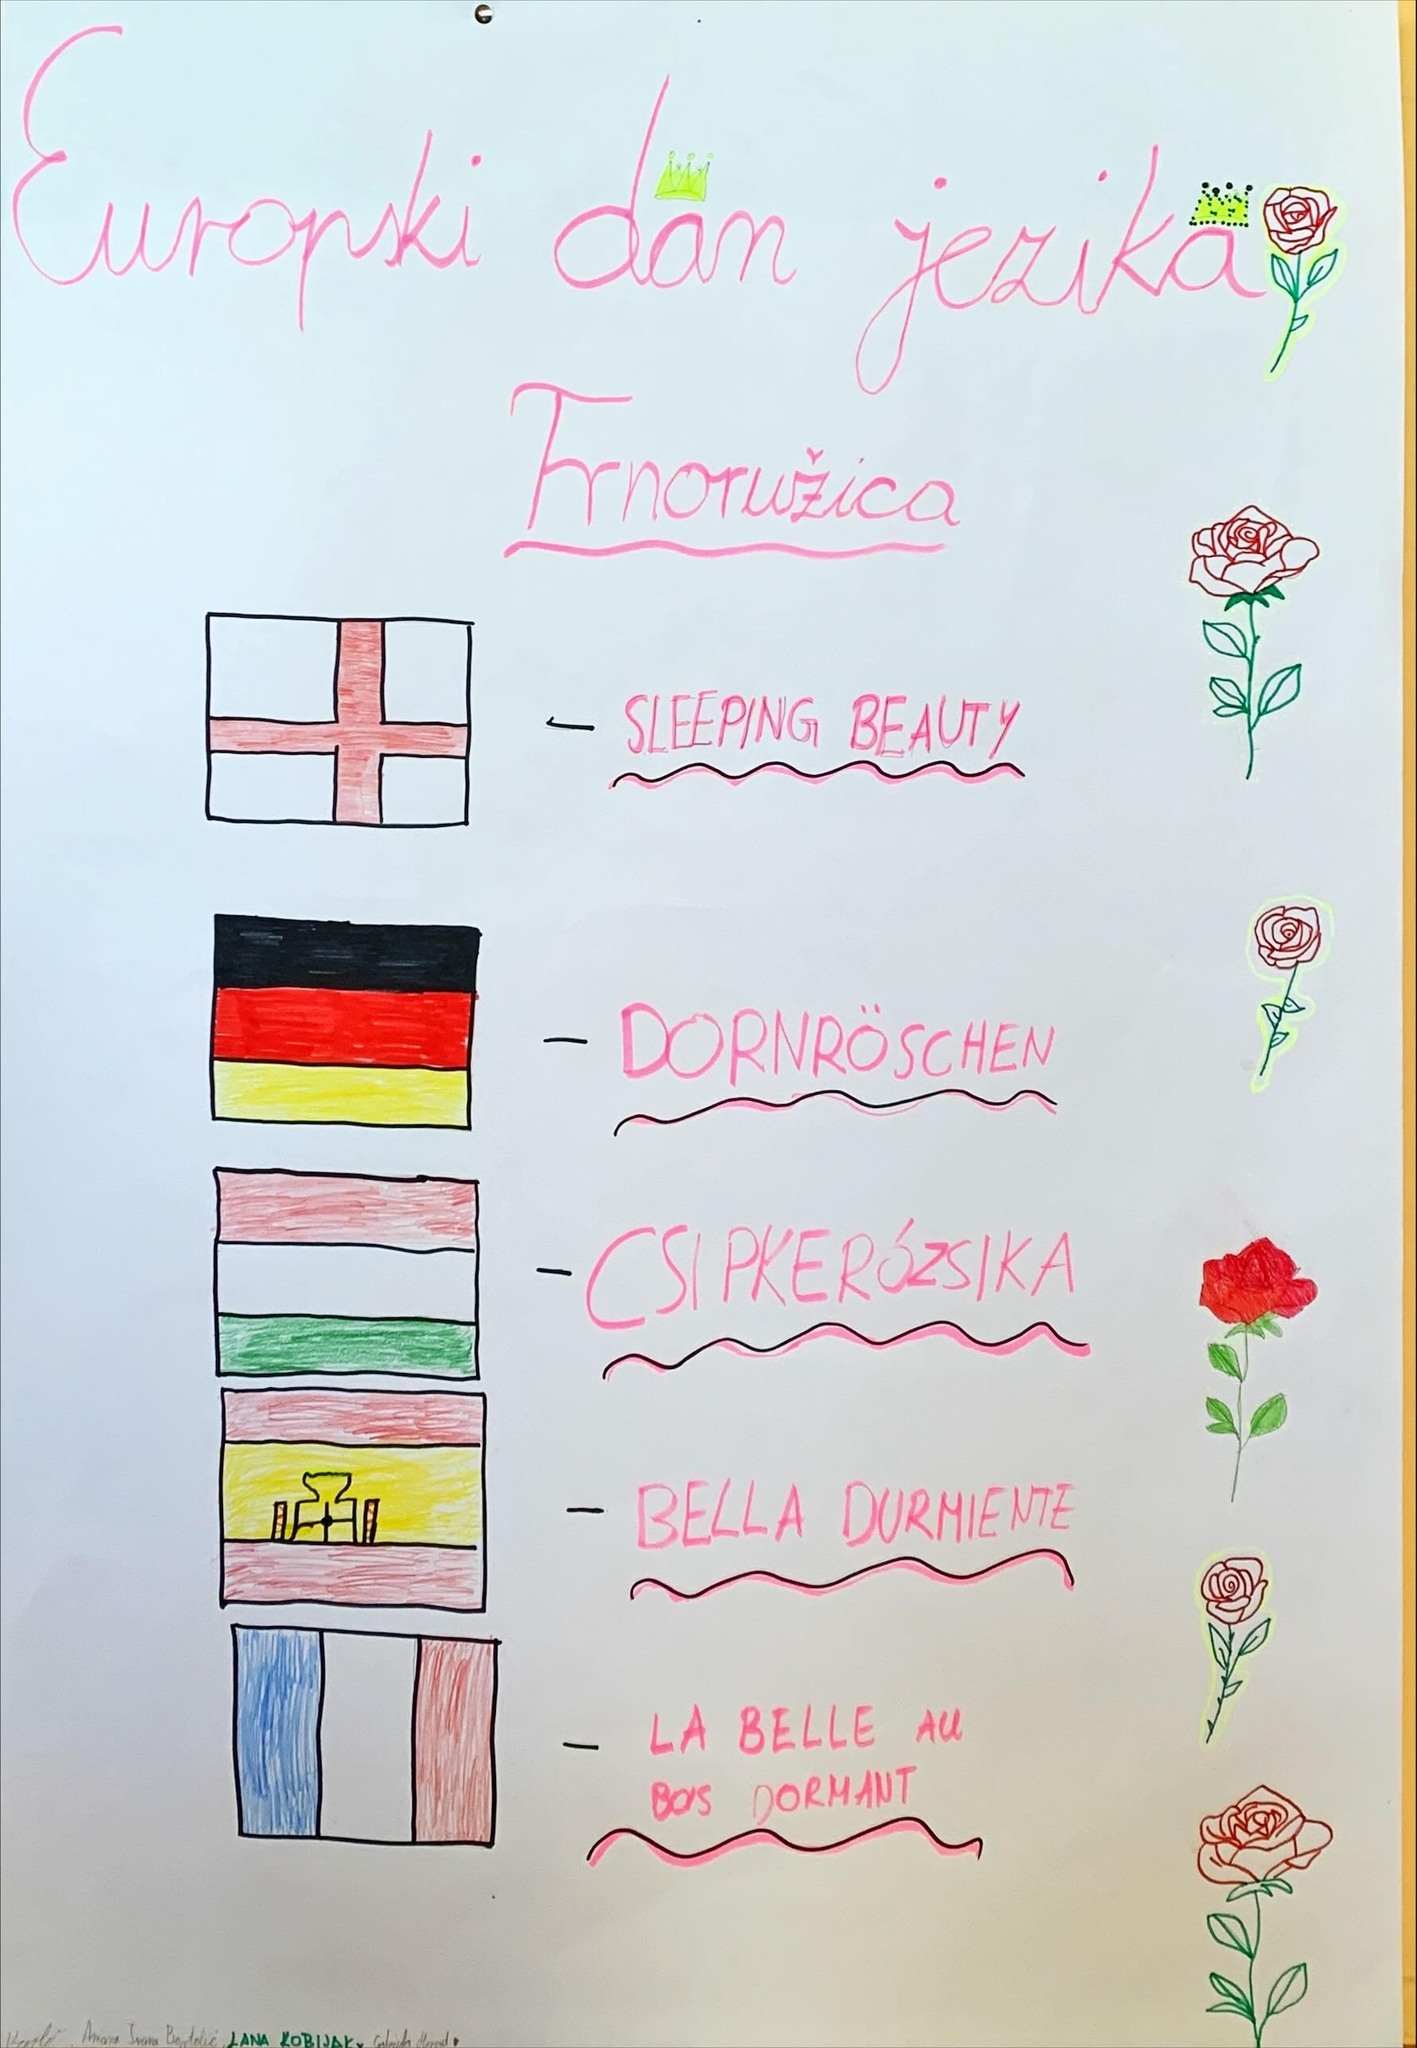 Europski dan jezika
Trnoružica
- SLEEPING BEAUTY
- DORNRÖSCHEN
- CSIPKERÓZSIKA
- BELLA DURMIENTE
- LA BELLE AU
BOIS DORMANT
LANA KOBIJAK